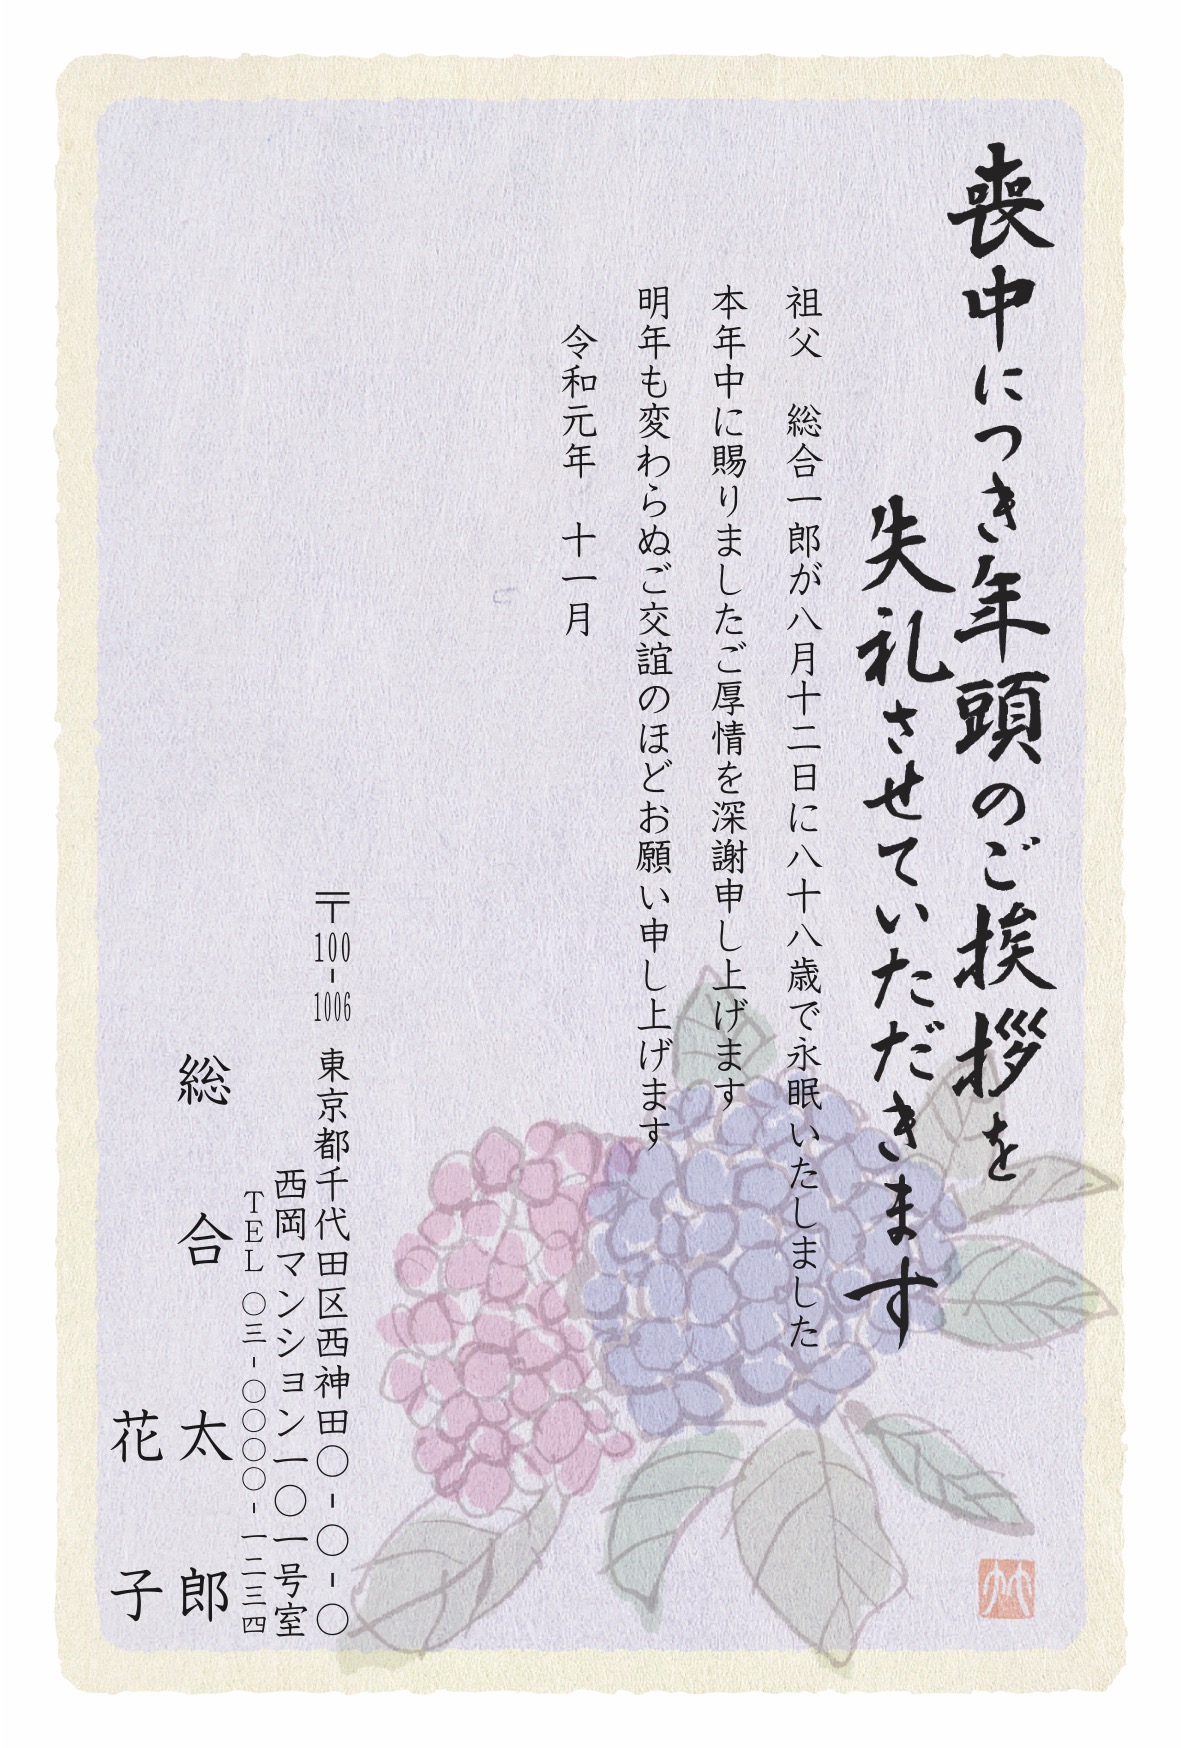 喪中につき年頭のご挨拶を
失礼させていただきます
祖父　総合一郎が八月十二日に八十八歳で永眠いたしました
本年中に賜りましたご厚情を深謝申し上げます
明年も変わらぬご交誼のほどお願い申し上げます
令和元年　十一月
〒100-1006　東京都千代田区西神田〇-〇-〇
西岡マンション一〇一号室
TEL 〇三-〇〇〇〇-一二三四
総　合　太　郎
花　子